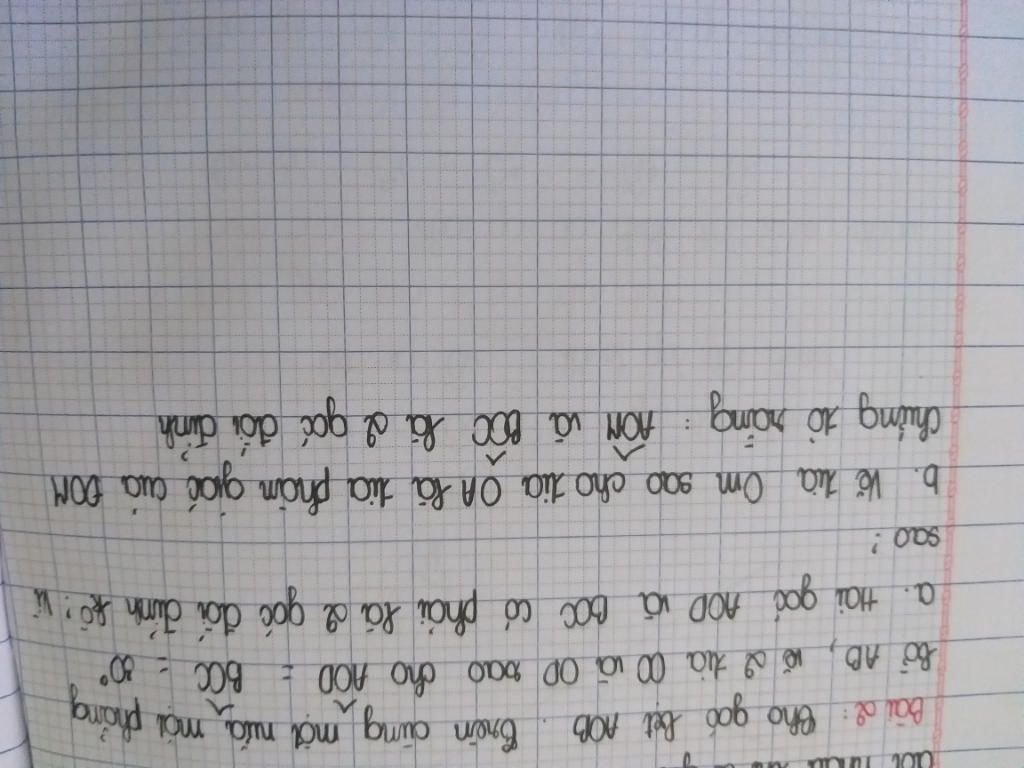 Bài 2: Cho góc bẹt AOB. Trên cùng một nửa mặt phẳng
bờ AB, vẽ 2 tia OC và OD sao cho AOD = BOC = 30°
a. Hai góc AOD và BOC có phải là 2 góc đối đỉnh kô? Vì
sao?
b. Vẽ tia Om sao cho tia OA là tia phân giác của DOM
Chứng tỏ rằng: AOM và BOC là 2 góc đối đỉnh